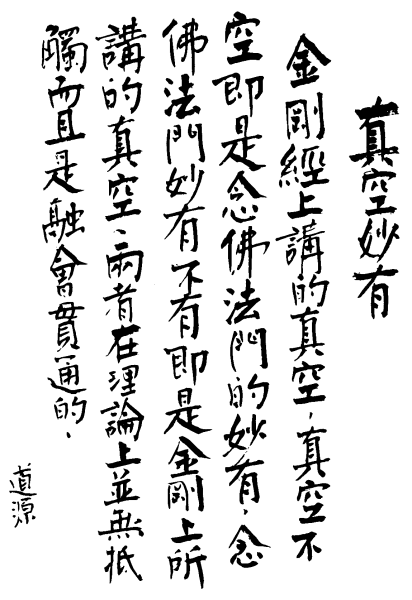 真空妙有
金剛經上講的真空，真空不
空即是念佛法門的妙有，念
佛法門妙有不有即是金剛上所
講的真空、兩者在理論上並無抵
觸而且是融會貫通的．
道源